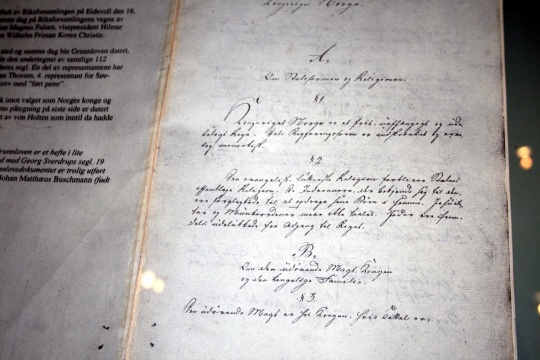 av Riksforsamlingen på Eidsvoll den 16.
dag på Riksforsamlingens vegne av
Magnus Falsen, visepresident Hilmar
Wilhelm Friman Koren Christie.
sted og samme dag ble Grunnloven datert,
den undertegnet av samtlige 112
deres segl. En del av representantene har
Thorsen, 4. representant for Søe-
krev med "ført penn".
imot valget som Norges konge og
påtegning på siste side er datert
av von Holten som inntil da hadde
Grunnloven er et hefte i lite
med Georg Sverdrups segl. 19
dokumentet er trolig utført
Johan Matthæus Buschmann (født
Kongeriget Norge.
A.
Om Statsformen og Religionen.
§ 1.
Kongeriget Norge er et frit, uafhængigt og ude-
leligt Rige. Dets Regjeringsform er indskrænket og arve-
lig monarkisk.
§ 2.
Den evangelisk-lutterske Religion forbliver Statens
offentlige Religion. De Indvaanere, der bekjende sig til den,
ere forpligtede til at opdrage sine Børn i samme. Jesuit-
ter og Munkeordener maae ikke taales. Jøder ere frem-
deles udelukkede fra Adgang til Riget.
B.
Om den udøvende Magt, Kongen
og den kongelige Familie.
§ 3.
Den udøvende Magt er hos Kongen. Hans Titel er: